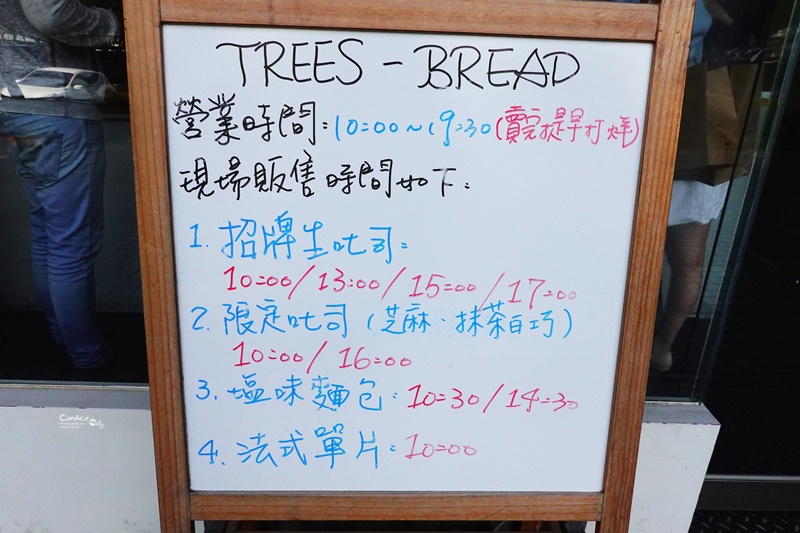 TREES - BREAD
營業時間:10:00~19:30(賣完提早打烊)
現場販售時間如下:
1. 招牌生吐司:
10:00/13:00/15:00/17:00
2. 限定吐司(芝麻.抹茶白巧)
10:00/16:00
3. 塩味麵包:10:30/14:30
4. 法式單片:10:00
Candice